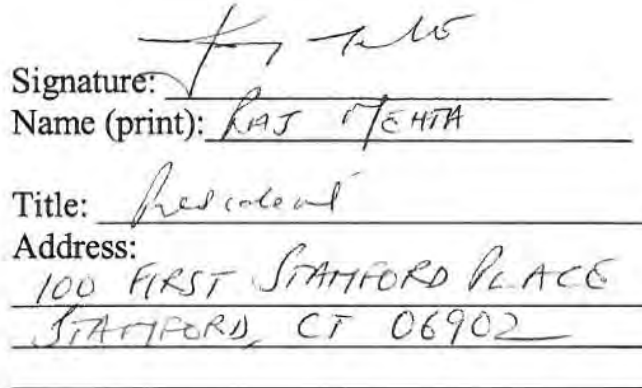 Signature:
Name (print): RAJ MEHTA
Title: President
Address:
100 FIRST STAMFORD PLACE
STAMFORD, CT 06902